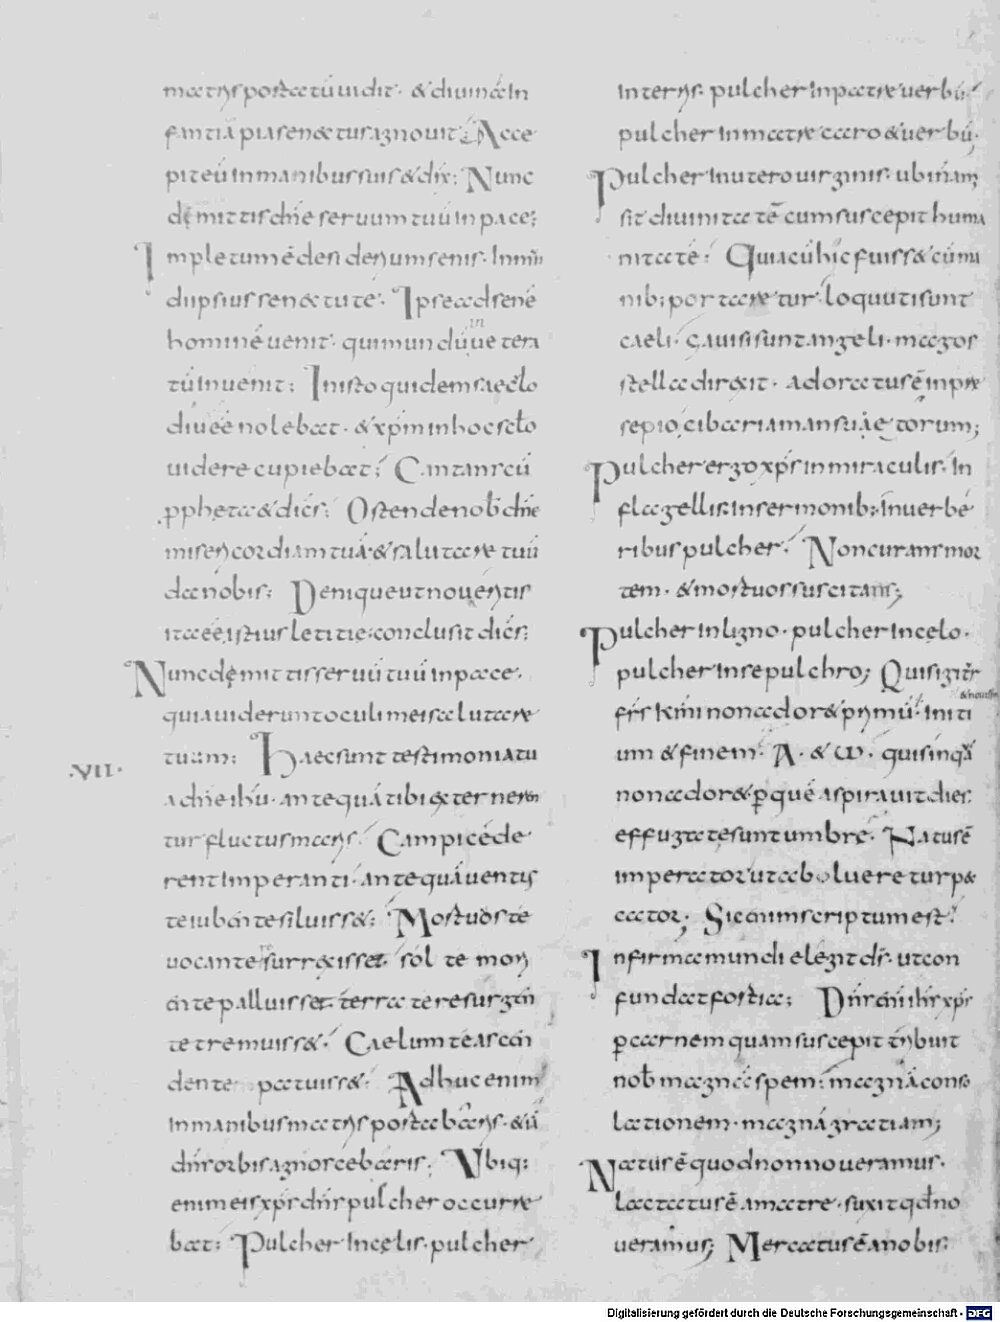 matris postatu͞ uidit· & diuina͞ in
fantia͞ pia senectus agnouit; Acce
pit eu͞ in manibus suis & dix̄; Nunc
demittis dn̄e seruum tuu͞ in pace;
Impletum ē desiderium senis· In mun
di ipsius senectute· Ipse ad sene͞
homine͞ uenit· qui mundu͞ in uetera
tu͞ inuenit; In isto quidem saecl̄o
diu eē nolebat· & xp̄m in hoc scl̄o
uidere cupiebat; Cantans cu͞
ppheta & dicēs; Ostende nob̄ dn̄e
misericordiam tua͞ & salutare tuu͞
da nobis; Denique ut noueritis
ita eē, istius letitie· conclusit dicēs;
Nunc demittis seruu͞ tuu͞ in pace·
quia uiderunt oculi mei salutare
tuum; Haec sunt testimonia tu
·VII·
a dn̄e ih̄u· antequa͞ tibi &ternerēn
tur fluctus maris· Campi cede
rent imperanti· antequa͞ uentis
te iubente siluiss&; Mortuos te
uocante surrexisset· sol te mori
ente palluisset· terra te resurgen
te tremuiss&· Caelum te ascen
dente patuiss&· Adhuc enim
in manibus matris postabaris· & ia͞
dn̄s orbis agnoscebaris; Vbiq;
enim eis xp̄s dn̄s pulcher occurre
bat; Pulcher in celis· pulcher
in terris· pulcher in patre uerbu͞·
pulcher in matre caro & uerbu͞·
Pulcher in utero uirginis· ubi nam
sit diuinitate͞ cum suscepit huma
nitate͞; Quia cu͞ hic fuiss& cu͞ ma
nib; portaretur· loquuti sunt
caeli· gauisi sunt angeli· magos
stella direxit· adoratus ē in pre
sepio, cibaria mansuaetorum;
Pulcher ergo xp̄s in miraculis· In
flagellis· in sermonib; in uerbe
ribus pulcher· Non curans mor
tem· & mortuos suscitans;
Pulcher in ligno· pulcher in celo·
pulcher in sepulchro; Quis igit̄r
& nouissi
fr̄s km̄i non ador& primu͞· Initi
um & finem· A· & ω· quis inqua͞
non ador& p̱ que͞ aspirauit dies·
effugate sunt umbre· Natus ē
imperator ut abolueretur pec
cator; Sic enim scriptum est·
Infirma mundi elegit ds̄· ut con
fundat fortia; Dn̄s enī ih̄s xp̄s
p̱ carnem quam suscepit tribuit
nob̄ magna͞ spem; magna͞ conso
lationem· magna͞ gratiam;
Natus ē quod non noueramus·
lactatus ē a matre· suxit qd̄ no
ueramus; Mercatus ē a nobis·
Digitalisierung gefördert durch die Deutsche Forschungsgemeinschaft · DFG